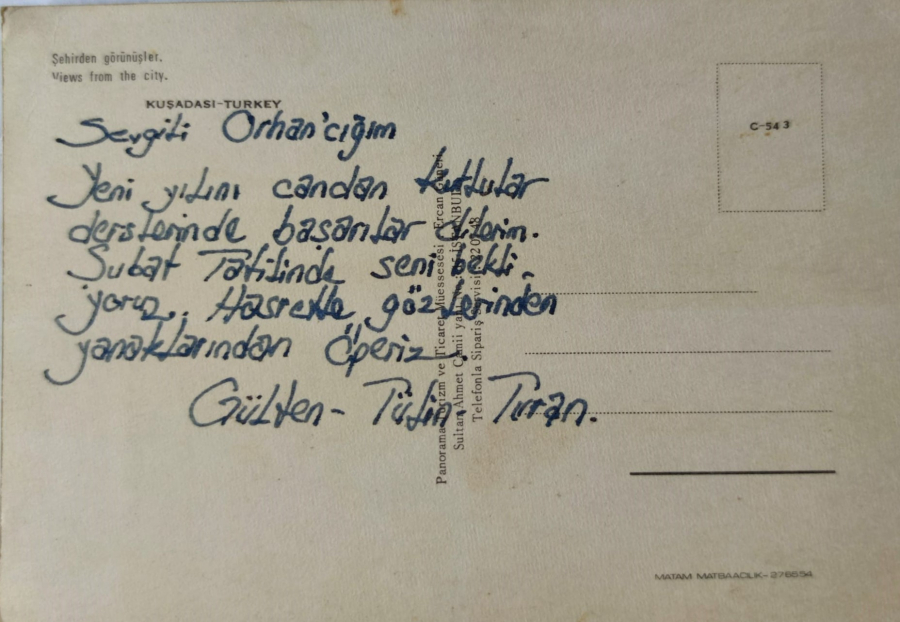 Şehirden görünüşler.
Views from the city.
KUŞADASI-TURKEY
C-543
Sevgili Orhan'cığım
Yeni yılını candan kutlular
derslerinde başarılar dilerim.
Şubat Tatilinde seni bekli,
yoruz. Hasretle gözlerinden
yanaklarından Öperiz.
Gülten - Tülin
Panorama Turizm ve Ticaret Müessesesi Ercan
Sultan Ahmet Camii İSTANBUL
Telefonla Sipariş Servisi:
MATAM MATBAACILIK-276654